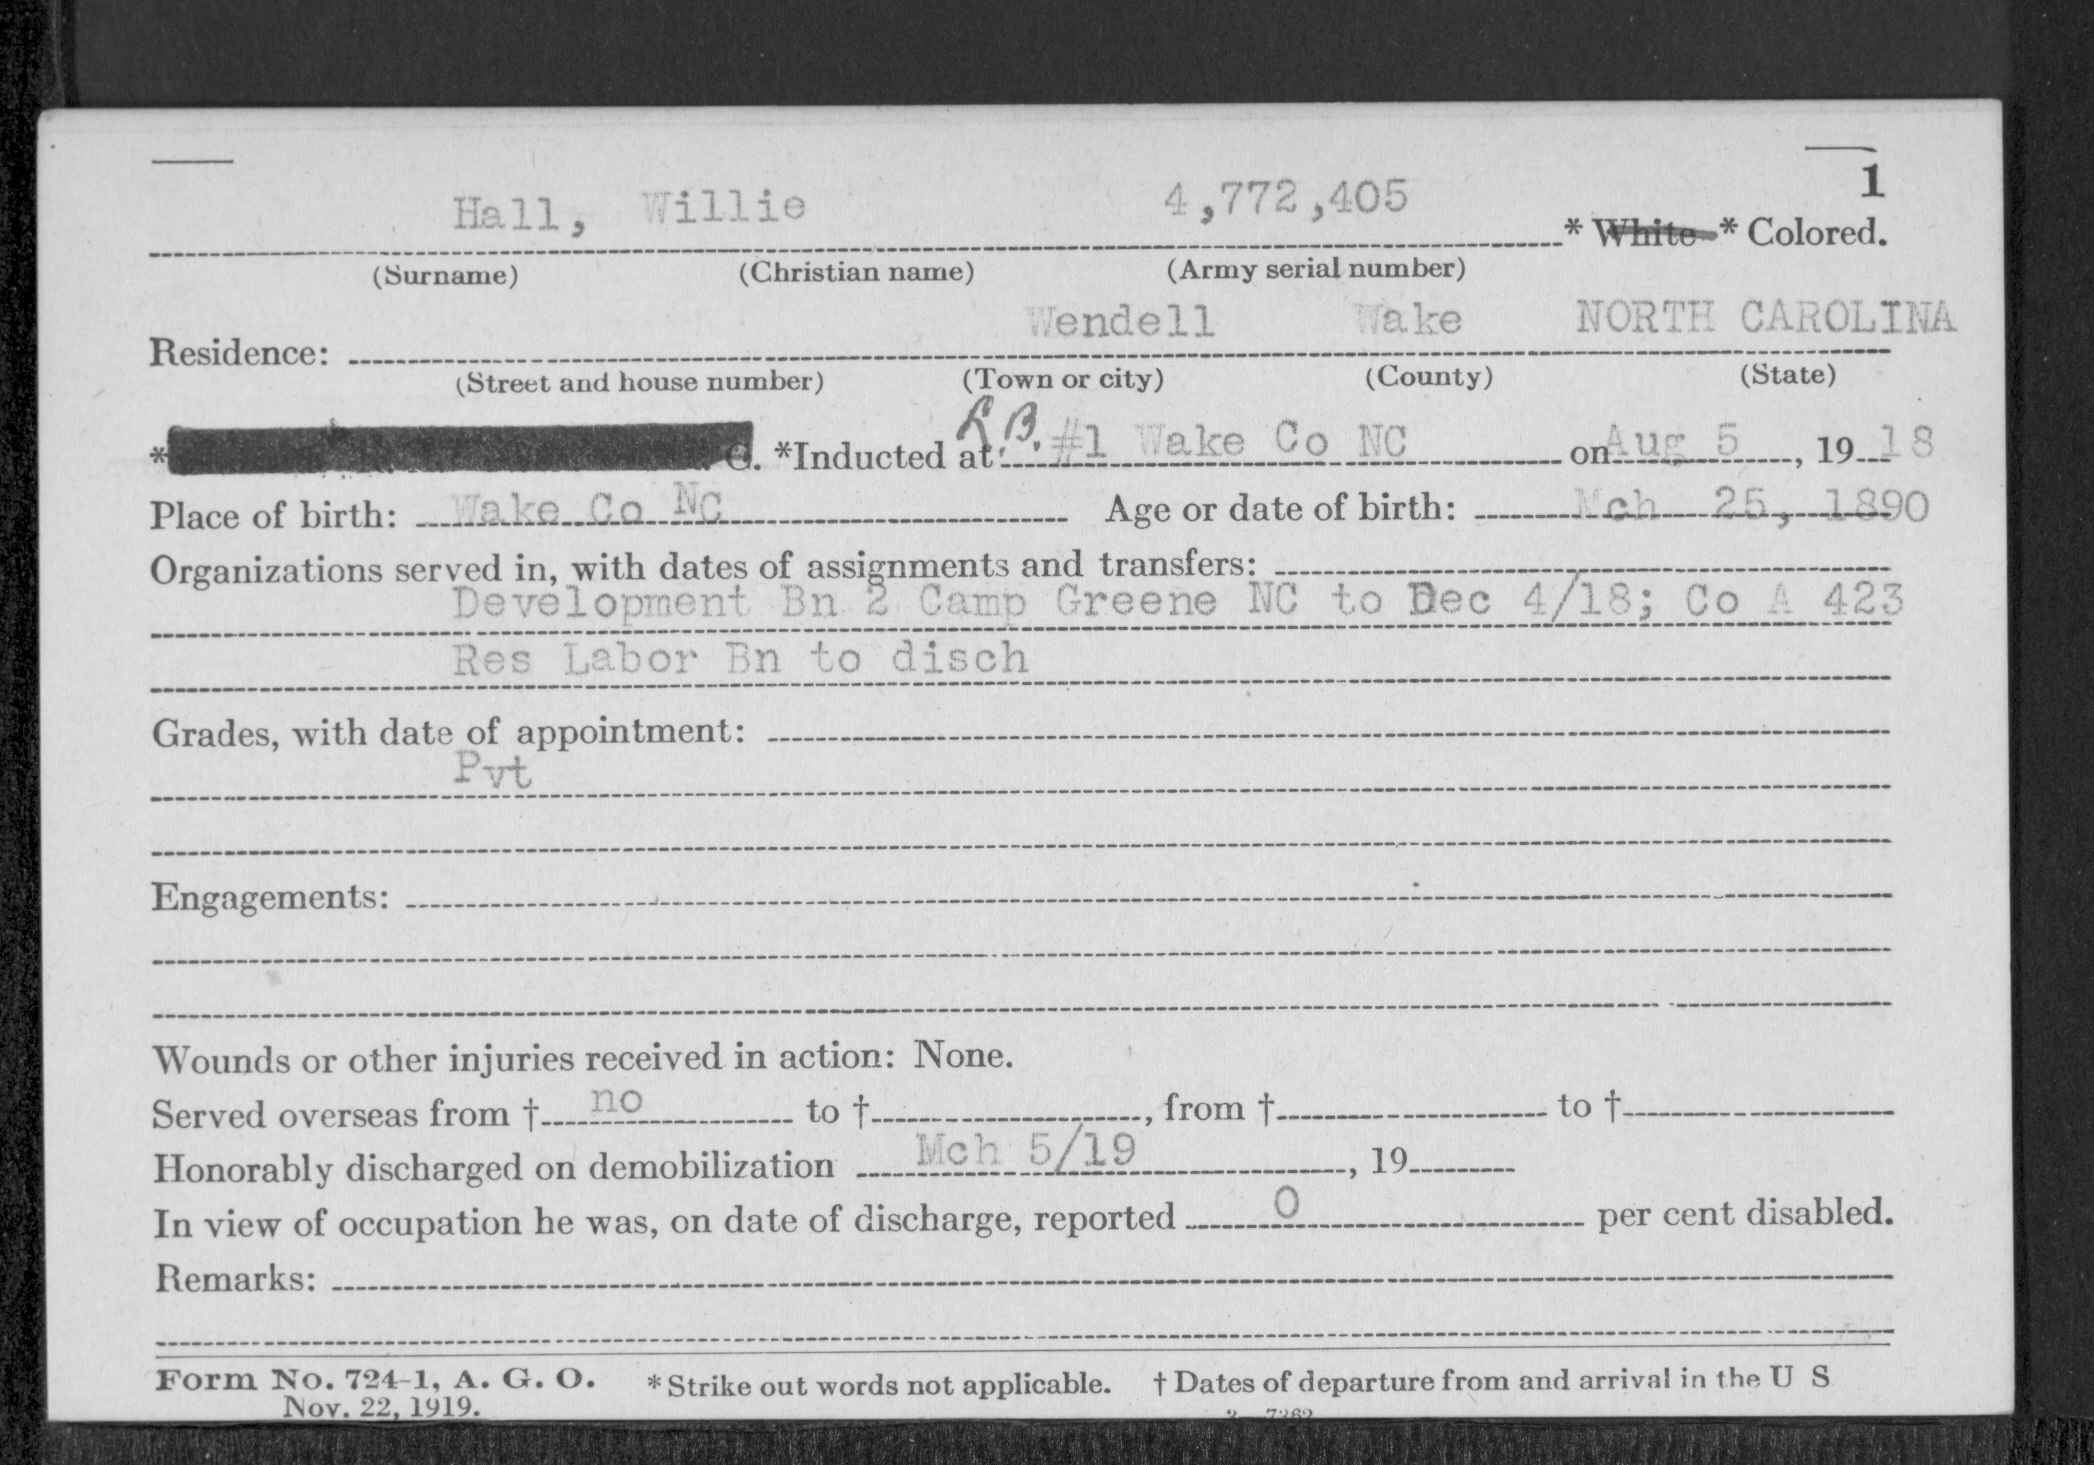 1
Hall, Willie 4,772,405 * White * Colored.
(Surname) (Christian name) (Army serial number)
Wendell Wake NORTH CAROLINA
Residence:
(Street and house number) (Town or city) (County) (State)
* C. *Inducted at L B. #1 Wake Co NC on Aug 5, 1918
Place of birth: Wake Co NC Age or date of birth: Mch 25, 1890
Organizations served in, with dates of assignments and transfers:
Development Bn 2 Camp Greene NC to Dec 4/18; Co A 423
Res Labor Bn to disch
Grades, with date of appointment:
Pvt
Engagements:
Wounds or other injuries received in action: None.
Served overseas from † no to †, from † to †
Honorably discharged on demobilization Mch 5/19, 19
In view of occupation he was, on date of discharge, reported 0 per cent disabled.
Remarks:
Form No. 724-1, A. G. O. *Strike out words not applicable. † Dates of departure from and arrival in the U S
Nov. 22, 1919.